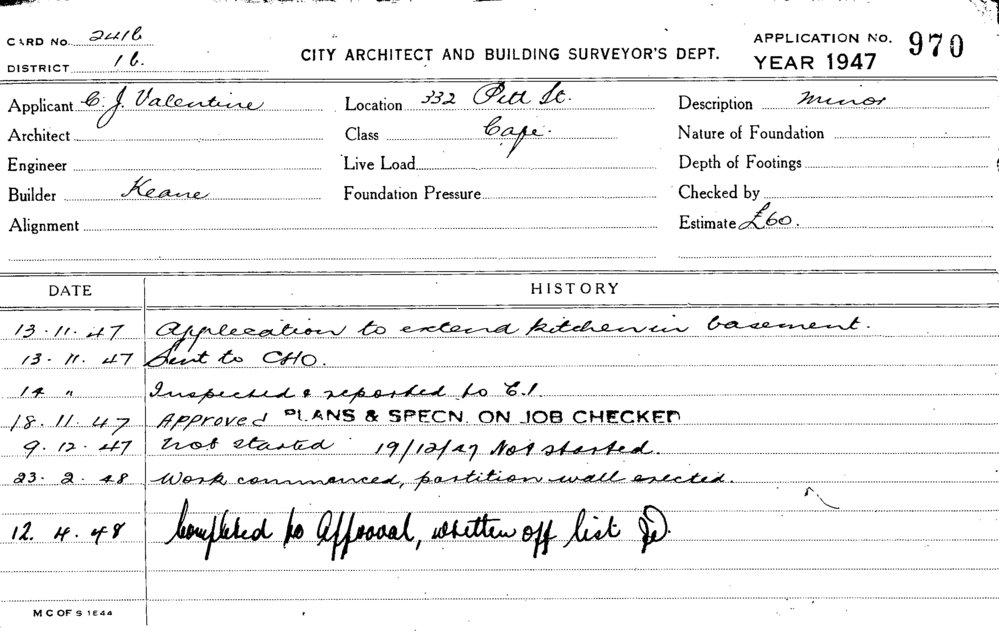 CARD No. 2416
DISTRICT 16.
CITY ARCHITECT AND BUILDING SURVEYOR'S DEPT.
APPLICATION No. 970
YEAR 1947
Applicant C. J. Valentine
Location 332 Pitt St.
Description Minor
Architect
Class Cafe.
Nature of Foundation
Engineer
Live Load
Depth of Footings
Builder Keane
Foundation Pressure
Checked by
Alignment
Estimate £60.
DATE HISTORY
13.11.47 Application to extend kitchen in basement.
13.11.47 Sent to CHO.
14 " Inspected & reported to C.I.
18.11.47 Approved PLANS & SPECN. ON JOB CHECKED
9.12.47 Not started 19/12/47 Not started.
23.2.48 Work commenced, partition wall erected.
12.4.48 Completed to Approval, written off list
M C OF S 1E44